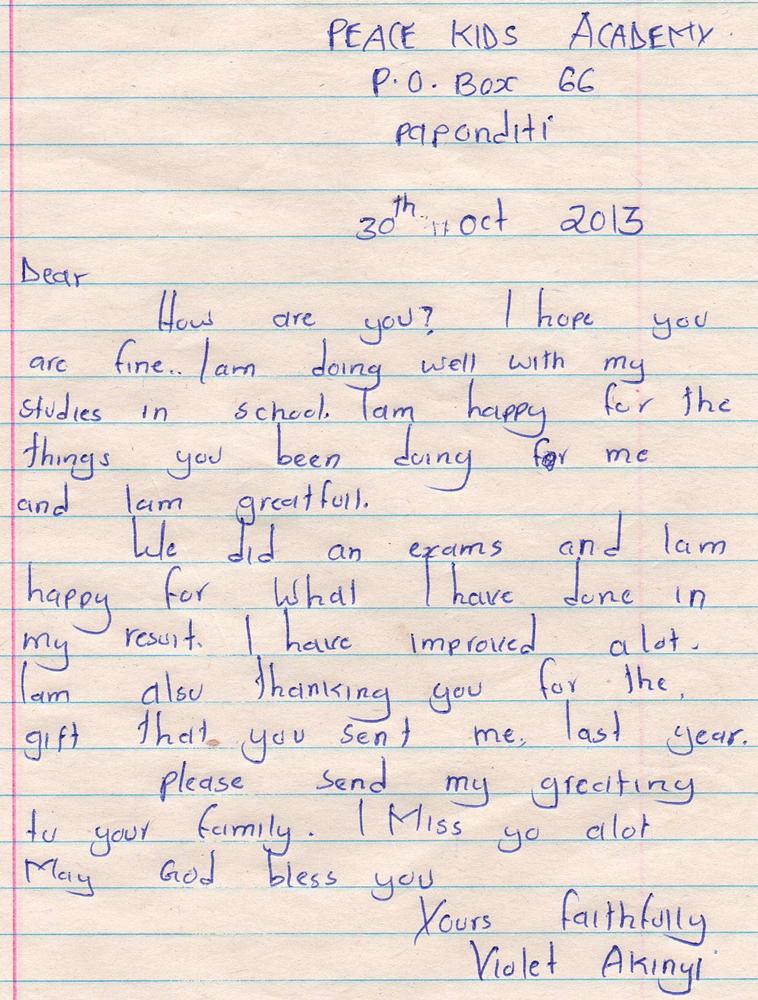 PEACE KIDS ACADEMY
P.O. Box 66
paponditi
30th Oct 2013
Dear
How are you? I hope you
are fine.. Iam doing well with my
studies in school. Iam happy for the
things you been doing for me
and Iam greatfull.
We did an exams and Iam
happy for what I have done in
my result. I have improved alot.
Iam also thanking you for the,
gift that you sent me, last year.
please send my greating
to your family. I Miss yo alot
May God bless you
Yours faithfully
Violet Akinyi